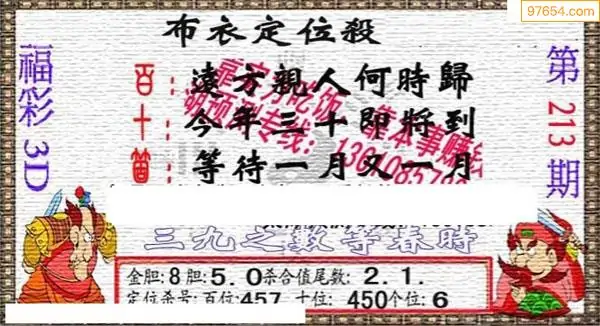 97654.com
布衣定位殺
福彩3D
第213期
百:遠方親人何時歸
十:今年三十即將到
個:等待一月又一月
三九之数等春時
金胆:8胆:5.0杀合值尾数:2.1.
定位杀号:百位:457 十位:450个位:6